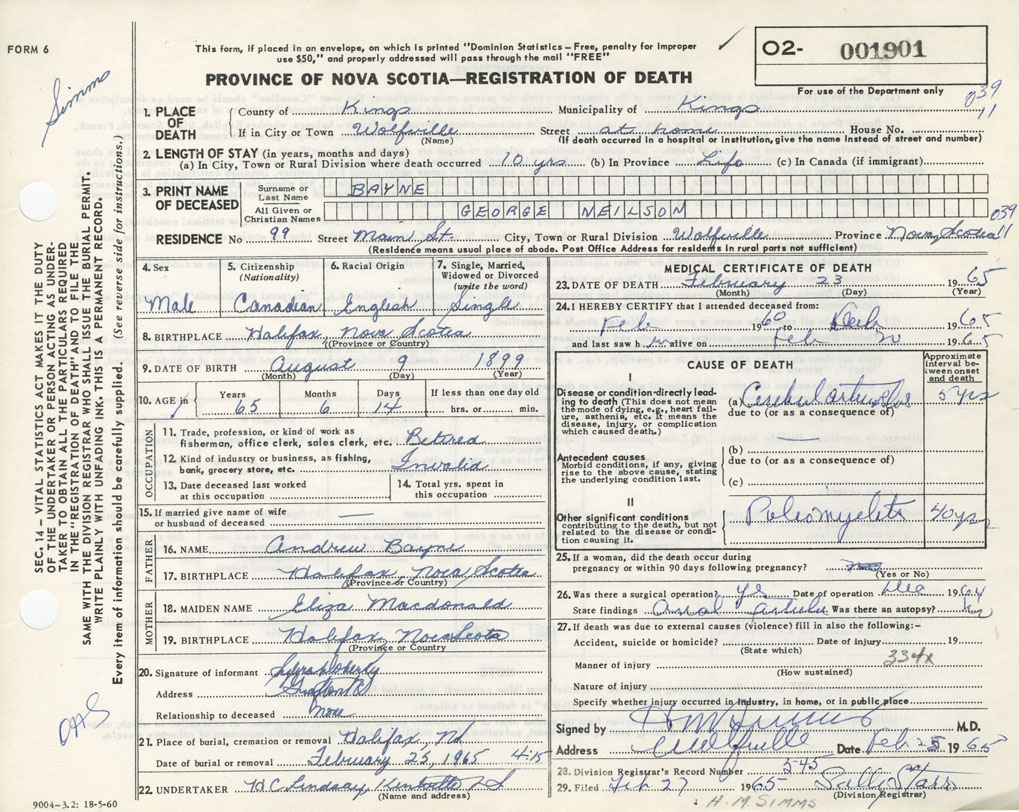 FORM 6
This form, if placed in an envelope, on which is printed "Dominion Statistics – Free, penalty for improper
use $50," and properly addressed will pass through the mail "FREE"
O2- 001901
PROVINCE OF NOVA SCOTIA—REGISTRATION OF DEATH
For use of the Department only
Simms
039
11
1. PLACE OF DEATH
County of Kings Municipality of Kings
If in City or Town Wolfville Street at home House No.
(Name) (If death occurred in a hospital or institution, give the name instead of street and number)
2. LENGTH OF STAY (in years, months and days)
(a) In City, Town or Rural Division where death occurred 10 yrs (b) In Province Life (c) In Canada (if immigrant)
3. PRINT NAME OF DECEASED
Surname or Last Name BAYNE
All Given or Christian Names GEORGE NEILSON
039
11
RESIDENCE No 99 Street Main St. City, Town or Rural Division Wolfville Province Nova Scotia
(Residence means usual place of abode. Post Office Address for residents in rural parts not sufficient)
SEC. 14 – VITAL STATISTICS ACT MAKES IT THE DUTY
OF THE UNDERTAKER OR PERSON ACTING AS UNDER-
TAKER TO OBTAIN ALL THE PARTICULARS REQUIRED
IN THE "REGISTRATION OF DEATH" AND TO FILE THE
SAME WITH THE DIVISION REGISTRAR WHO SHALL ISSUE THE BURIAL PERMIT.
WRITE PLAINLY WITH UNFADING INK. THIS IS A PERMANENT RECORD.
Every item of information should be carefully supplied. (See reverse side for instructions.)
4. Sex
Male
5. Citizenship
(Nationality)
Canadian
6. Racial Origin
English
7. Single, Married,
Widowed or Divorced
(write the word)
Single
8. BIRTHPLACE Halifax, Nova Scotia
(Province or Country)
9. DATE OF BIRTH August 9 1899
(Month) (Day) (Year)
10. AGE in
Years Months Days If less than one day old
65 6 14 hrs. or min.
OCCUPATION
11. Trade, profession, or kind of work as
fisherman, office clerk, sales clerk, etc. Retired
12. Kind of industry or business, as fishing,
bank, grocery store, etc. Invalid
13. Date deceased last worked
at this occupation
14. Total yrs. spent in
this occupation
15. If married give name of wife
or husband of deceased —
FATHER
16. NAME Andrew Bayne
17. BIRTHPLACE Halifax, Nova Scotia
(Province or Country)
MOTHER
18. MAIDEN NAME Eliza Macdonald
19. BIRTHPLACE Halifax, Nova Scotia
(Province or Country)
20. Signature of informant
Address
Relationship to deceased none
21. Place of burial, cremation or removal Halifax
Date of burial or removal February 25, 1965
22. UNDERTAKER W.C. Lindsay
(Name and address)
9004-3.2: 18-5-60
MEDICAL CERTIFICATE OF DEATH
23. DATE OF DEATH February 23 1965
(Month) (Day) (Year)
24. I HEREBY CERTIFY that I attended deceased from:
Feb 1960 to Feb 1965
and last saw him alive on Feb 20 1965
CAUSE OF DEATH
Approximate
interval be-
tween onset
and death
I
Disease or condition directly lead-
ing to death (This does not mean
the mode of dying, e.g., heart fail-
ure, asthenia, etc. It means the
disease, injury, or complication
which caused death.)
(a) Cerebral 5 yrs
due to (or as a consequence of)
Antecedent causes
Morbid conditions, if any, giving
rise to the above cause, stating
the underlying condition last.
(b)
due to (or as a consequence of)
(c)
II
Other significant conditions
contributing to the death, but not
related to the disease or condi-
tion causing it.
Poliomyelitis 40 yrs
25. If a woman, did the death occur during
pregnancy or within 90 days following pregnancy?
(Yes or No)
26. Was there a surgical operation? yes Date of operation Dec 1964
State findings Was there an autopsy?
27. If death was due to external causes (violence) fill in also the following:-
Accident, suicide or homicide? Date of injury 19
(State which)
334x
Manner of injury
(How sustained)
Nature of injury
Specify whether injury occurred in industry, in home, or in public place
Signed by M.D.
Address Wolfville Date Feb 25 1965
28. Division Registrar's Record Number 545
29. Filed Feb 27 1965
(Division Registrar)
H.M. SIMMS